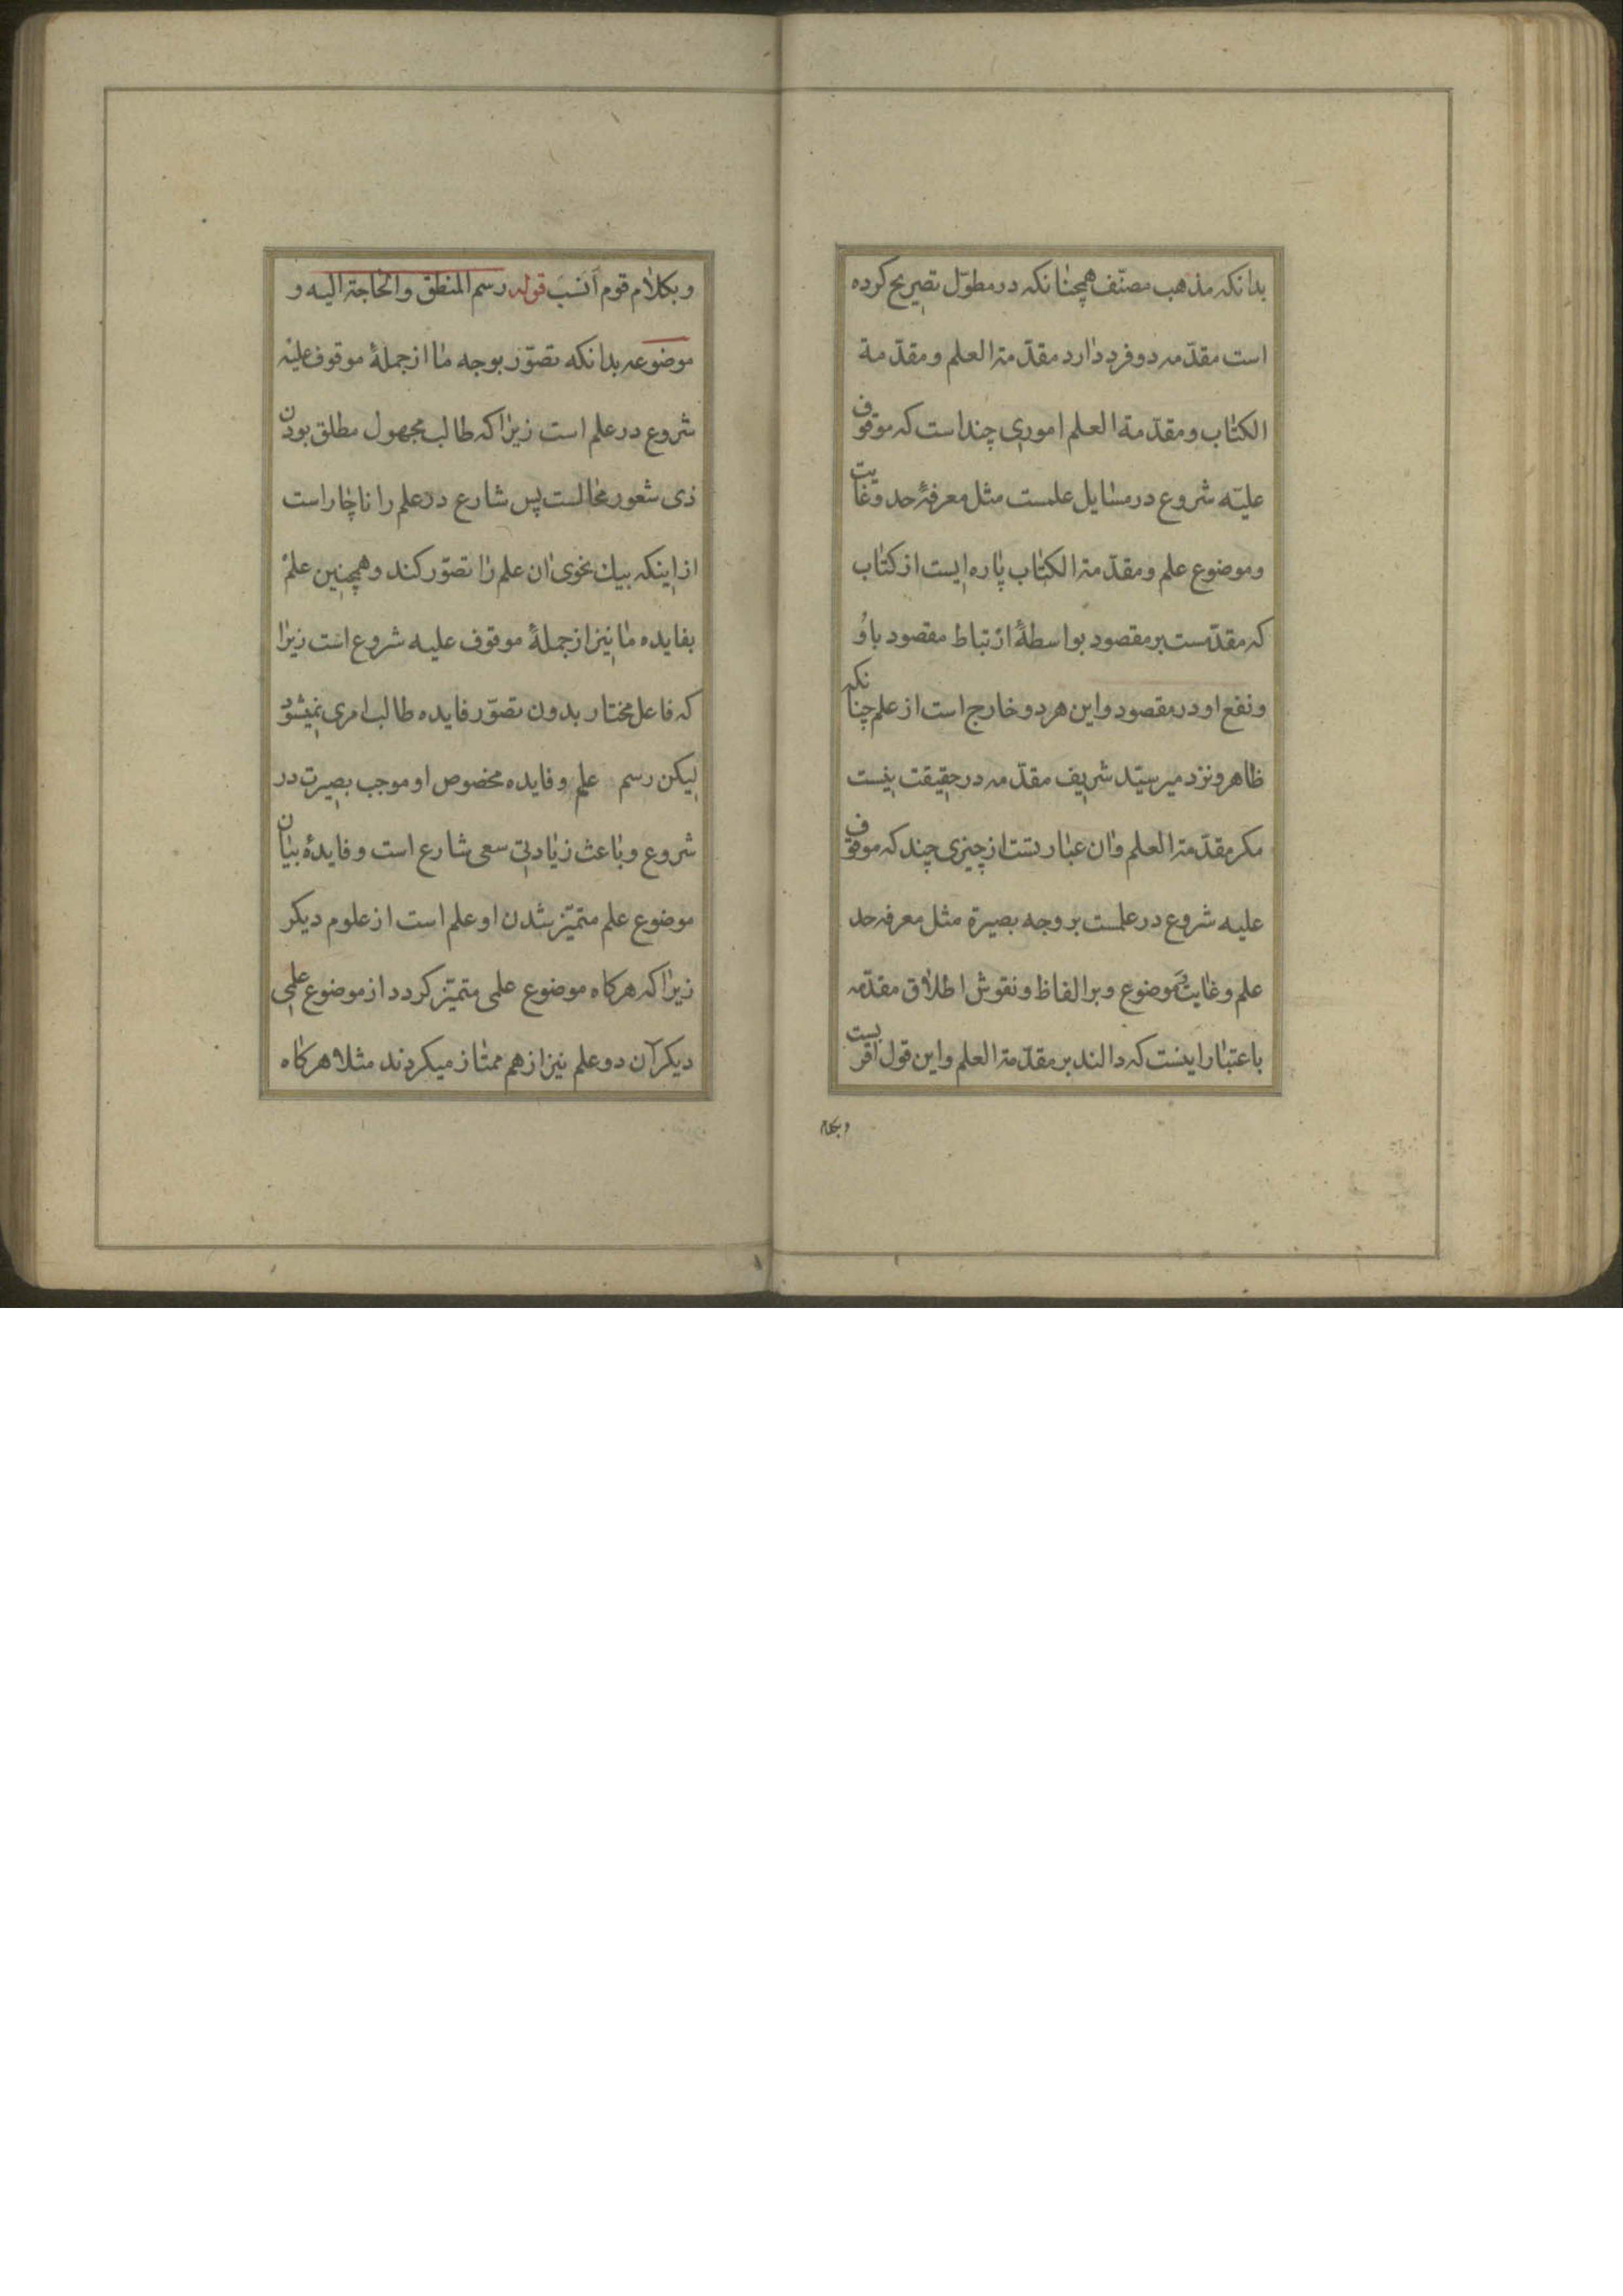 بدانکه مذهب مصنّف همچنانکه در مطوّل تصریح کرده
است مقدّمه دو فرد دارد مقدّمة العلم و مقدّمة
الکتاب و مقدّمة العلم اموری چند است که موقوف
علیه شروع در مسایل علمست مثل معرفة حد و غایت
و موضوع علم و مقدّمة الکتاب پاره ایست از کتاب
که مقدّمست بر مقصود بواسطهٔ ارتباط مقصود باو
و نفع او در مقصود و این هر دو خارج است از علم چنانکه
ظاهر و نزد میر سیّد شریف مقدّمه در حقیقت نیست
مکر مقدّمة العلم و ان عبارتست از چیزی چند که موقوف
علیه شروع در علمست بر وجه بصیرة مثل معرفه حد
علم و غایت و موضوع و بر الفاظ و نقوش اطلاق مقدّمه
باعتبار اینست که دالند بر مقدّمة العلم و این قول اقربست
و بکلام
و بکلام قوم انسب قوله رسم المنطق و الحاجة الیه و
موضوعه بدانکه تصوّر بوجه ما از جملهٔ موقوف علیه
شروع در علم است زیرا که طالب مجهول مطلق بودن
ذی شعور محالست پس شارع در علم را ناچار است
از اینکه بیك نحوی ان علم را تصوّر کند و همچنین علم
بفایده ما نیز از جملهٔ موقوف علیه شروع است زیرا
که فاعل مختار بدون تصوّر فایده طالب امری نمیشود
لیکن رسم علم و فایده مخصوص او موجب بصیرت در
شروع و باعث زیادتی سعی شارع است و فایدهٔ بیان
موضوع علم متمیّز شدن او علم است از علوم دیکر
زیرا که هرکاه موضوع علمی متمیّز کردد از موضوع علمی
دیکر آن دو علم نیز از هم ممتاز میکردند مثلا هرکاه